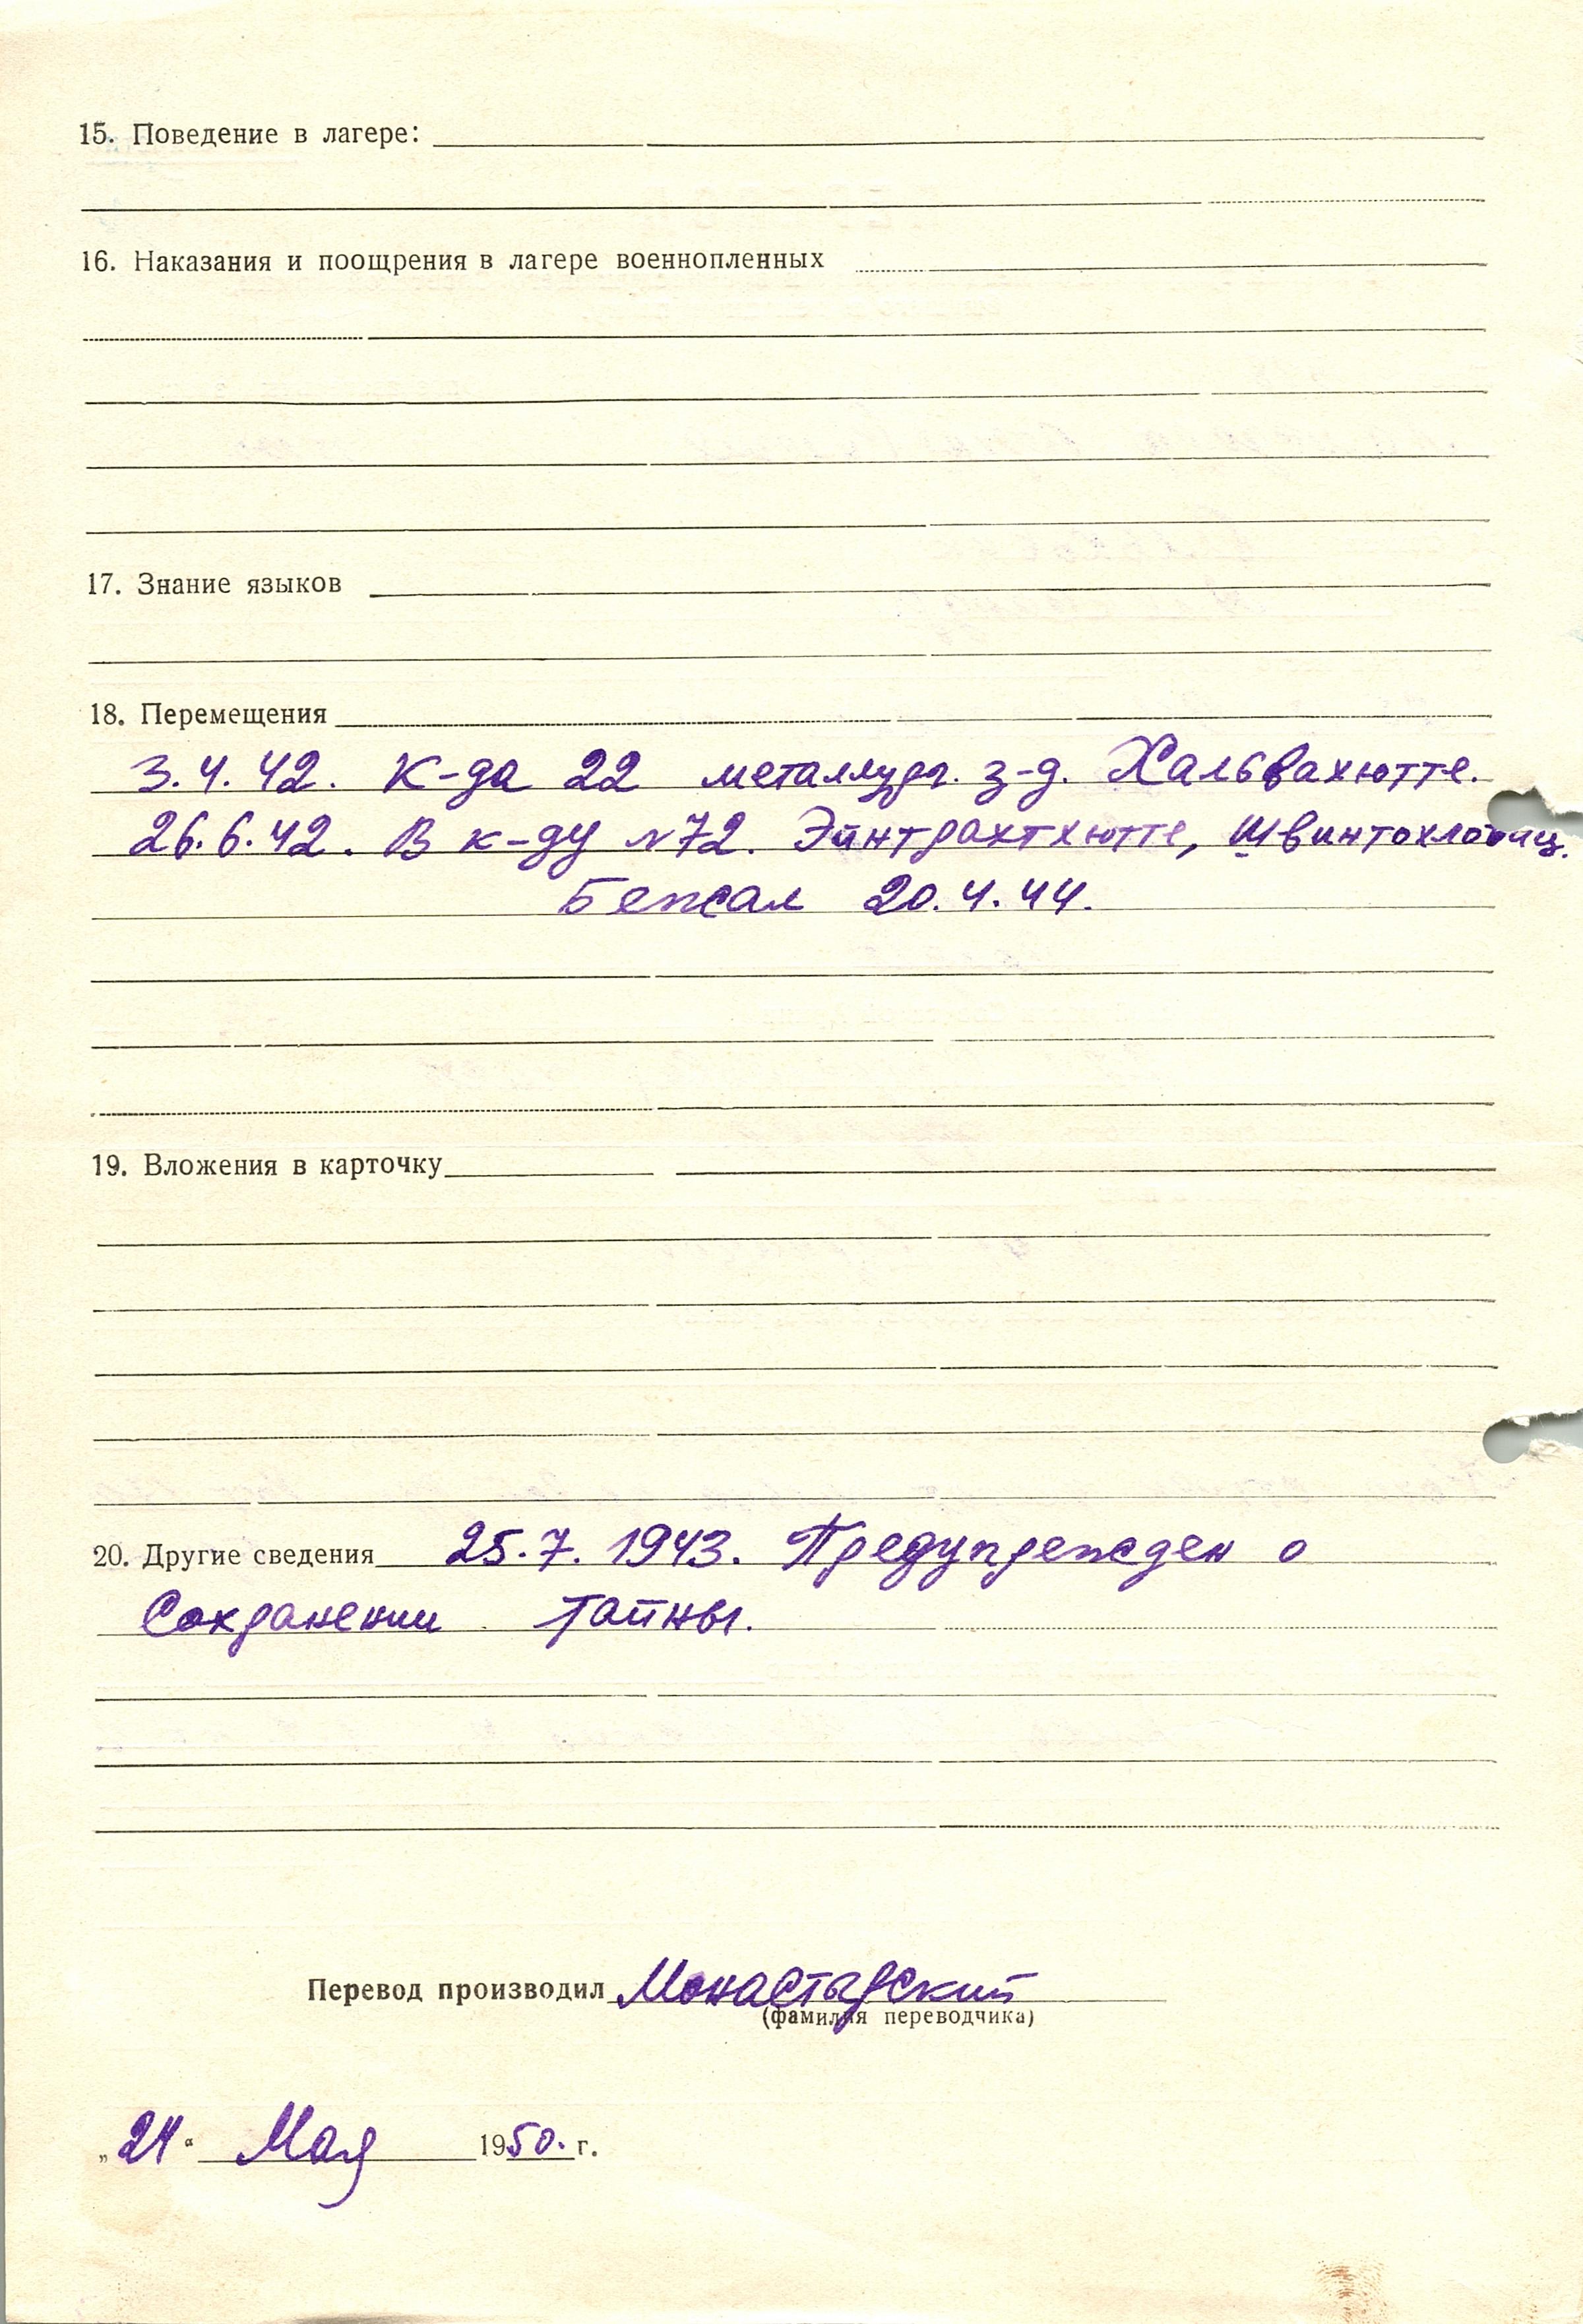 15. Поведение в лагере:
16. Наказания и поощрения в лагере военнопленных
17. Знание языков
18. Перемещения
3.4.42. К-да 22 металлург. з-д. Хальвахютте.
26.6.42. В к-ду №72. Эйнтрахтхютте, Швинтохловиц.
Бежал 20.4.44.
19. Вложения в карточку
20. Другие сведения 25.7.1943. Предупрежден о
Сохранении тайны.
Перевод производил Монастырский
(фамилия переводчика)
„24“ Мая 1950. г.